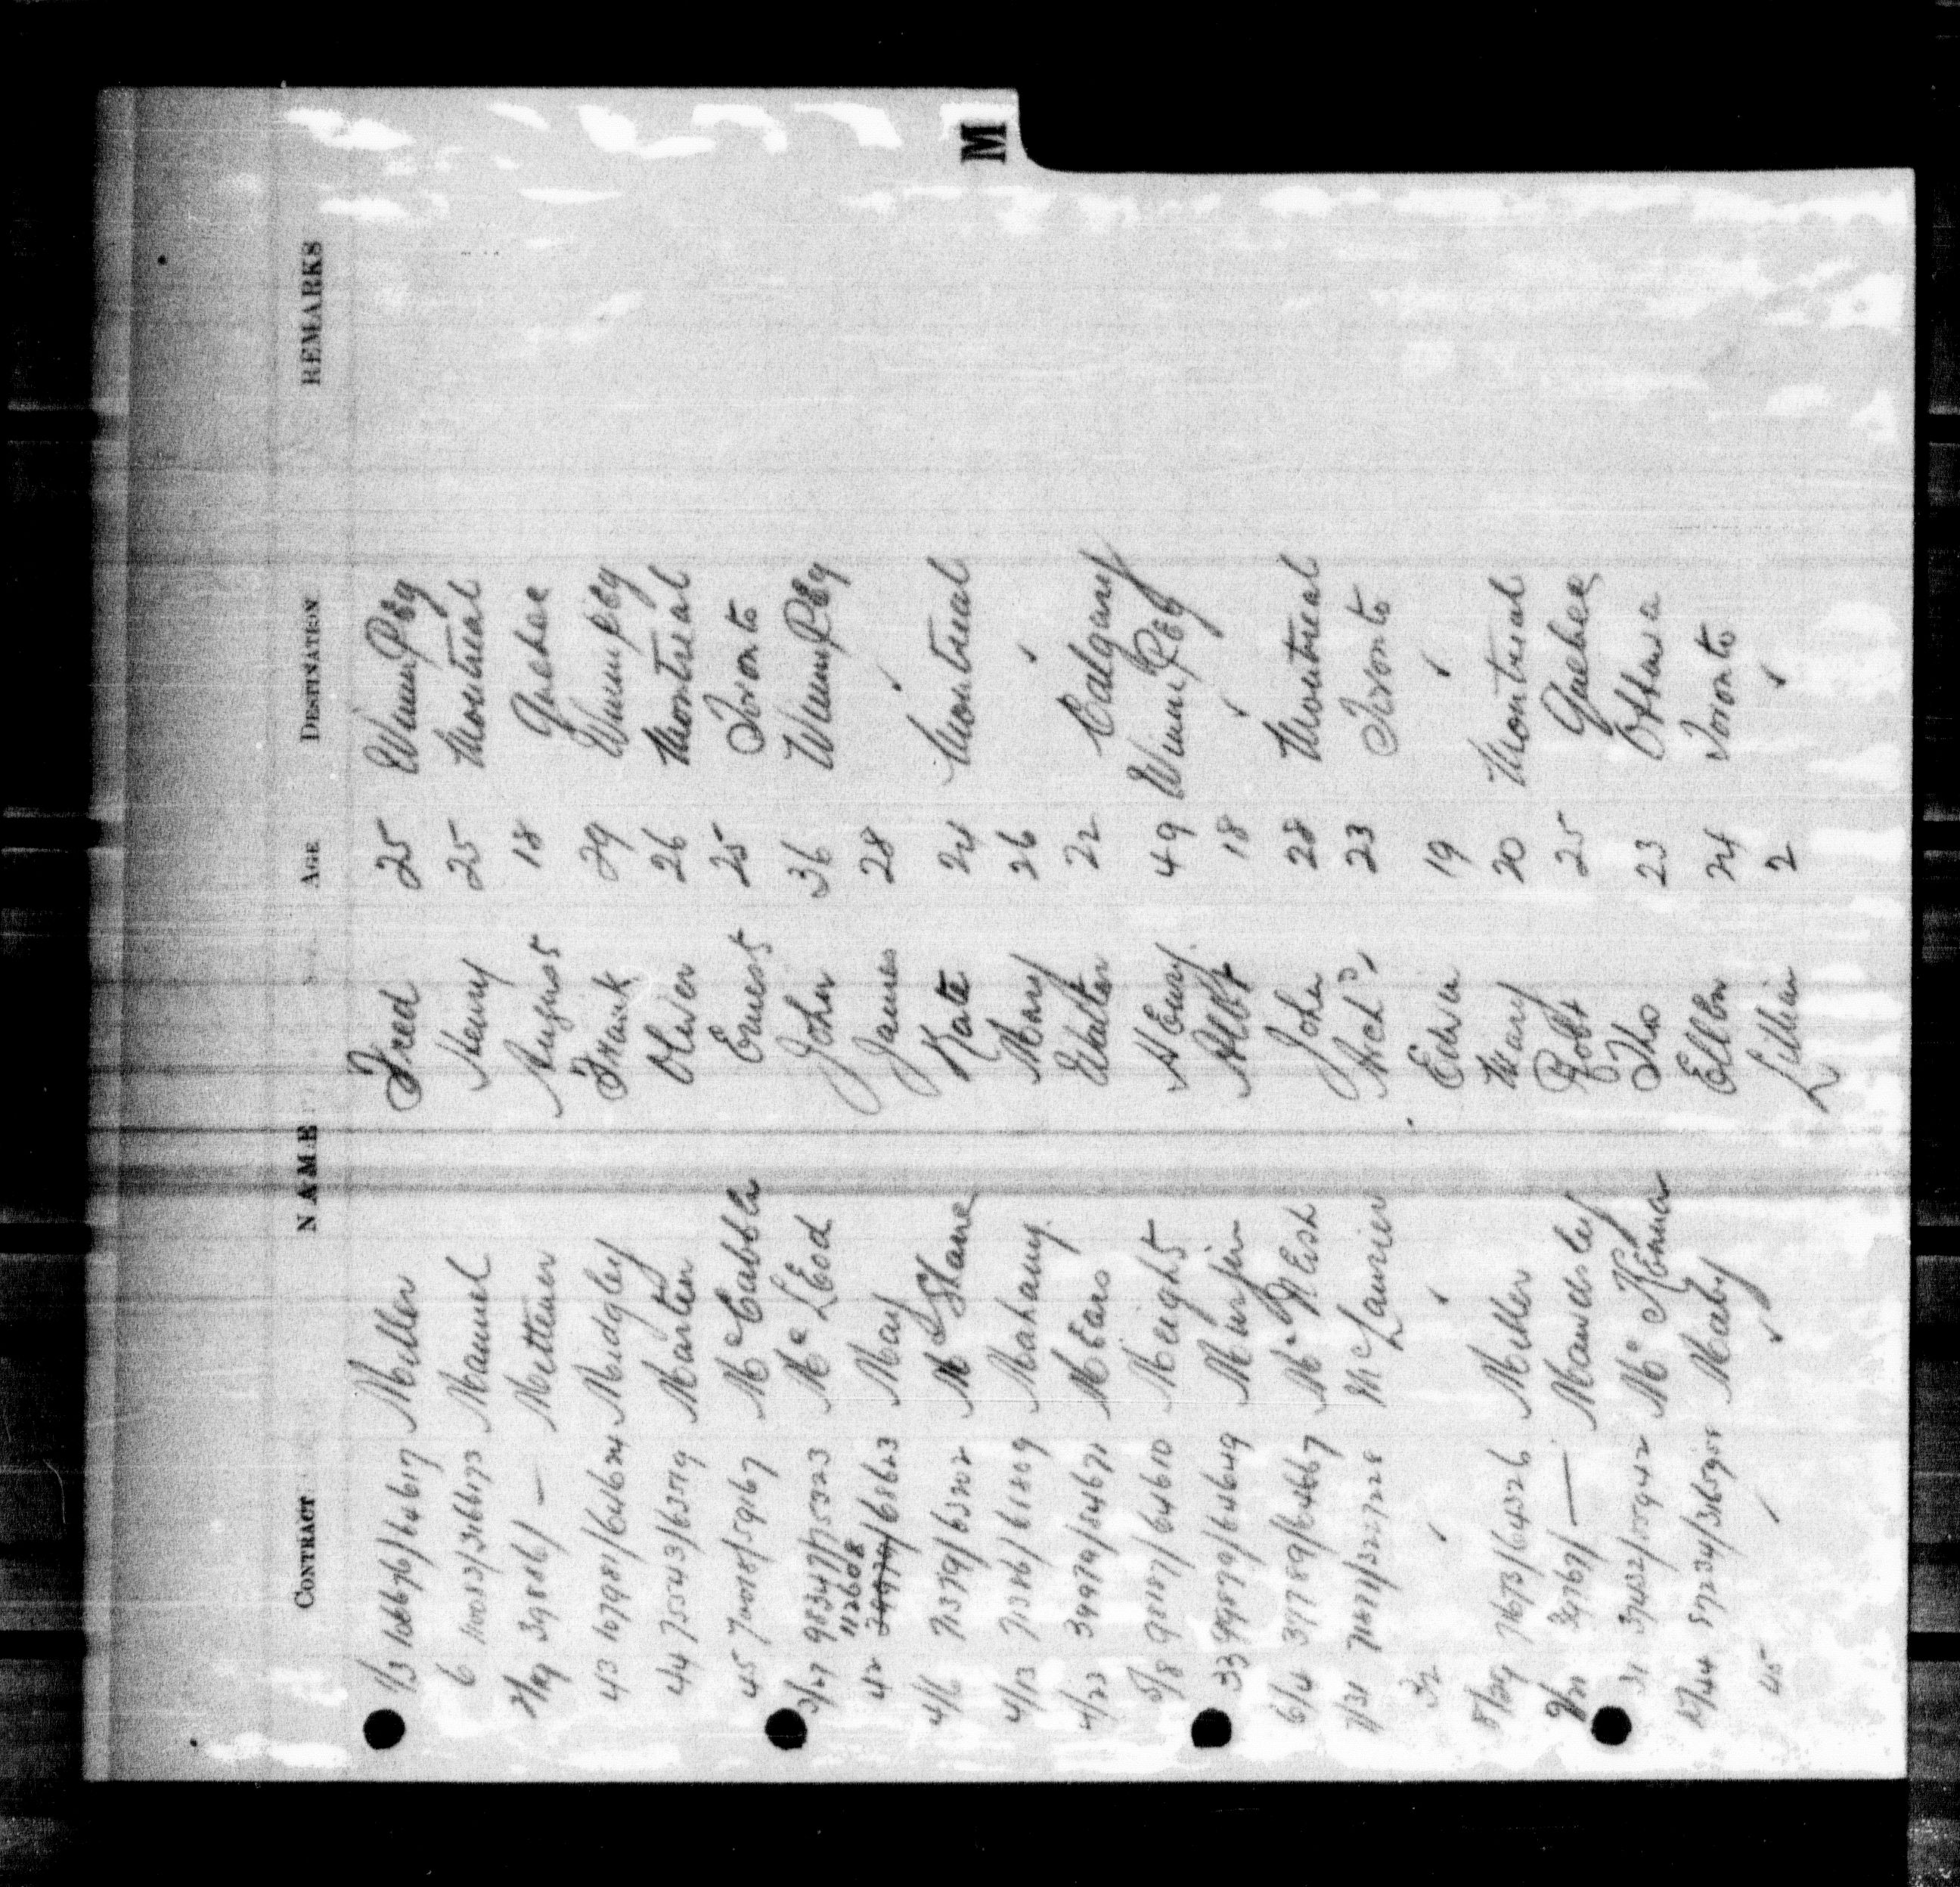 M
CONTRACT NAME AGE DESTINATION REMARKS
1/3 Miller Fred 25 Winnipeg
6 Manuel Henry 25 Montreal
39886/ — Mettener August 18 Quebec
43 107981/64624 Midgley Frank 29 Winnipeg
44 75543/63579 Marten Oliver 26 Montreal
45 70078/59167 McCabble Ernest 25 Toronto
3/27 98347/75323 McLeod John 36 Winnipeg
112608
42 /68623 May James 28 ✓
4/6 71379/63202 McShane Kate 24 Montreal
4/13 71386/68869 Mahany Mary 26 ✓
4/23 39979/84671 Mears Walter 22 Calgary
5/8 98187/64610 Meight Henry 49 Winnipeg
33 99879/64649 Munfin Albt 18 ✓
6/4 37789/64667 McNeish John 28 Montreal
7/31 71671/322728 McLaurier Archd 23 Toronto
32 ✓ ✓ Edwa 19 ✓
8/29 71673/64326 Miller Mary 20 Montreal
9/21 39767/ — Mawdsley Robt 25 Quebec
31 37632/ McKenna Tho 23 Ottawa
12/44 57234/365955 Maby Ellen 24 Toronto
45 ✓ ✓ Lillian 2 ✓